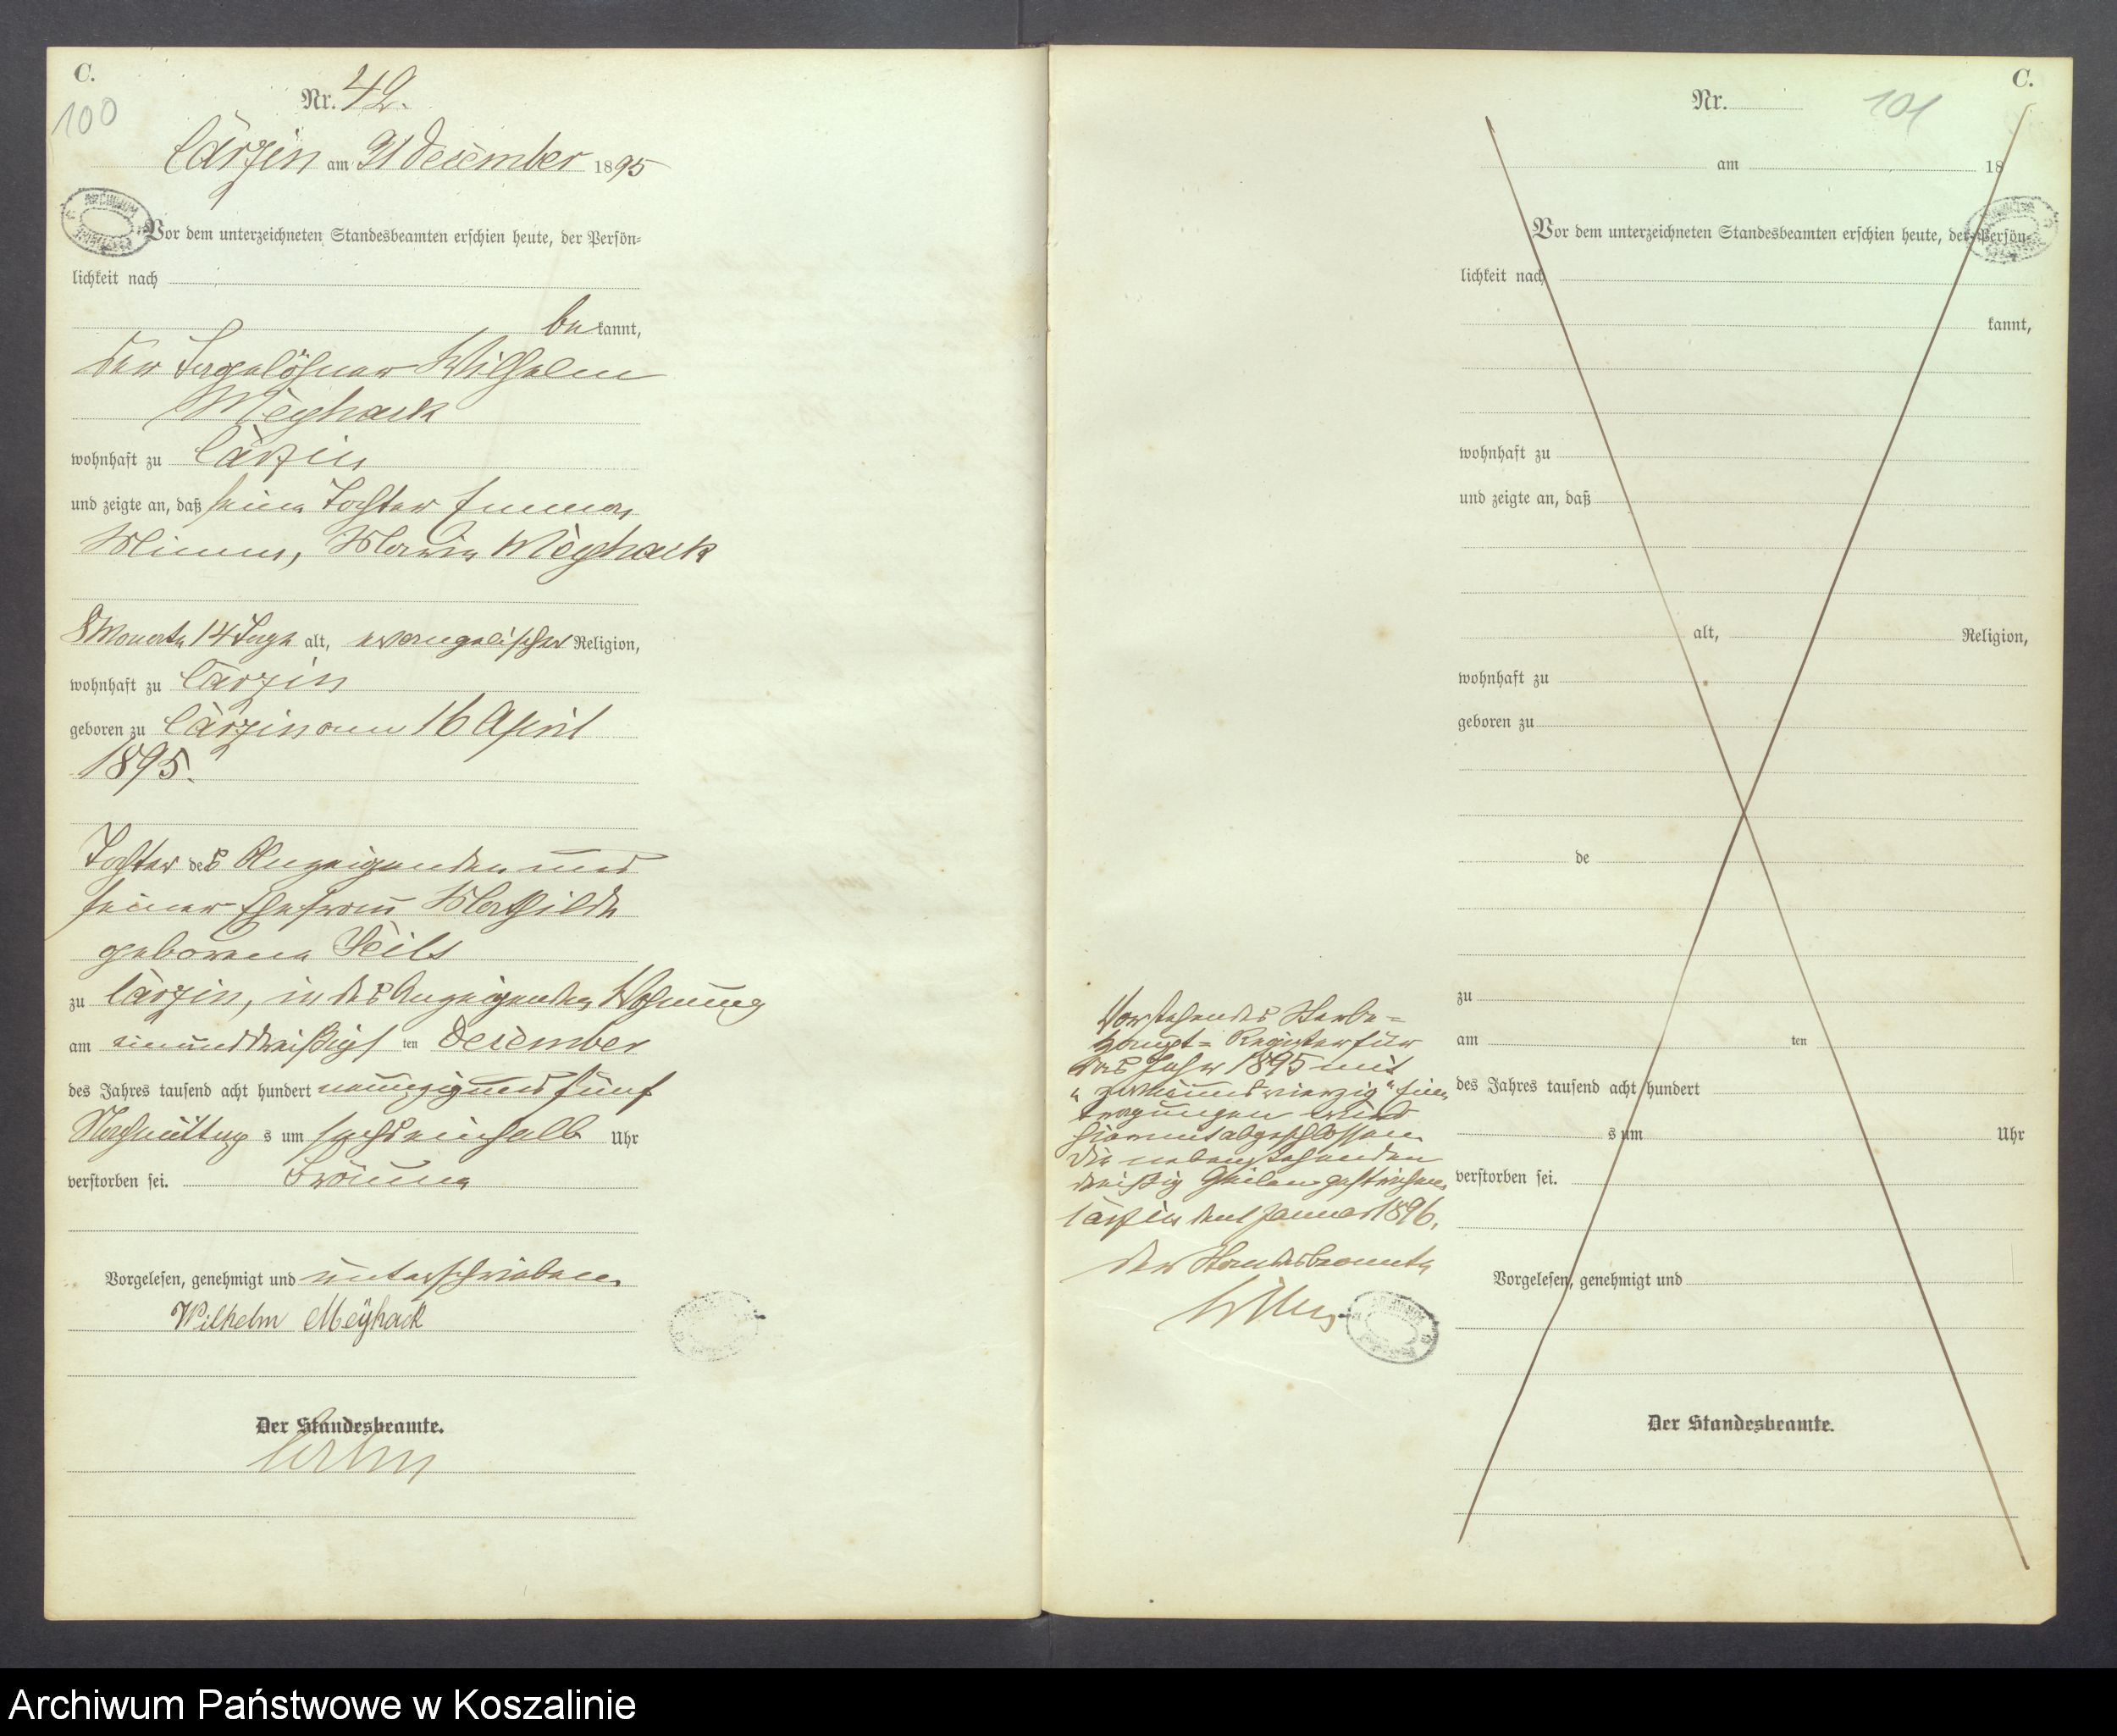 C.
100
Nr. 42.
Cärzin am 31 December 1895
Vor dem unterzeichneten Standesbeamten erschien heute, der Persön-
lichkeit nach
be kannt,
der Tagelöhner Wilhelm
Meyhack
wohnhaft zu Cärzin
und zeigte an, daß seine Tochter Emma,
Minna, Maria Meyhack
8 Monate 14 Tage alt, evangelischer Religion,
wohnhaft zu Cärzin
geboren zu Cärzin am 16 April
1895.
Tochter des Anzeigenden und
seiner Ehefrau Mathilde
geborene
zu Cärzin, in des Anzeigenden Wohnung
am einunddreißigst ten December
des Jahres tausend acht hundert neunzig und fünf
Nachmittag s um sechseinhalb Uhr
verstorben sei.
Vorgelesen, genehmigt und unterschrieben
Wilhelm Meÿhack
Der Standesbeamte.
C.
101
Nr.
am 18
Vor dem unterzeichneten Standesbeamten erschien heute, der Persön-
lichkeit nach
kannt,
wohnhaft zu
und zeigte an, daß
alt, Religion,
wohnhaft zu
geboren zu
de
zu
am ten
des Jahres tausend acht hundert
s um Uhr
verstorben sei.
Vorgelesen, genehmigt und
Der Standesbeamte.
Vorstehendes Sterbe-
Haupt-Register für
das Jahr 1895 mit
"zweiundvierzig" Ein-
tragungen wird
hiermit abgeschlossen.
Die nebenstehenden
dreißig Zeilen gestrichen
Cärzin den 1 Januar 1896.
Der Standesbeamte
Archiwum Państwowe w Koszalinie